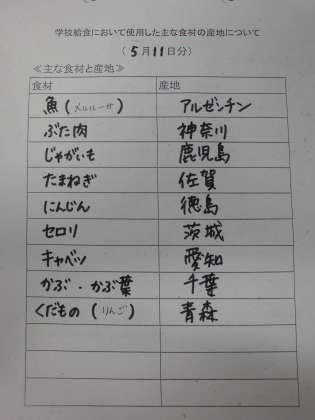 学校給食において使用した主な食材の産地について
(5月11日分)
≪主な食材と産地≫
食材 産地
魚(メルルーサ) アルゼンチン
ぶた肉 神奈川
じゃがいも 鹿児島
たまねぎ 佐賀
にんじん 徳島
セロリ 茨城
キャベツ 愛知
かぶ・かぶ葉 千葉
くだもの(りんご) 青森